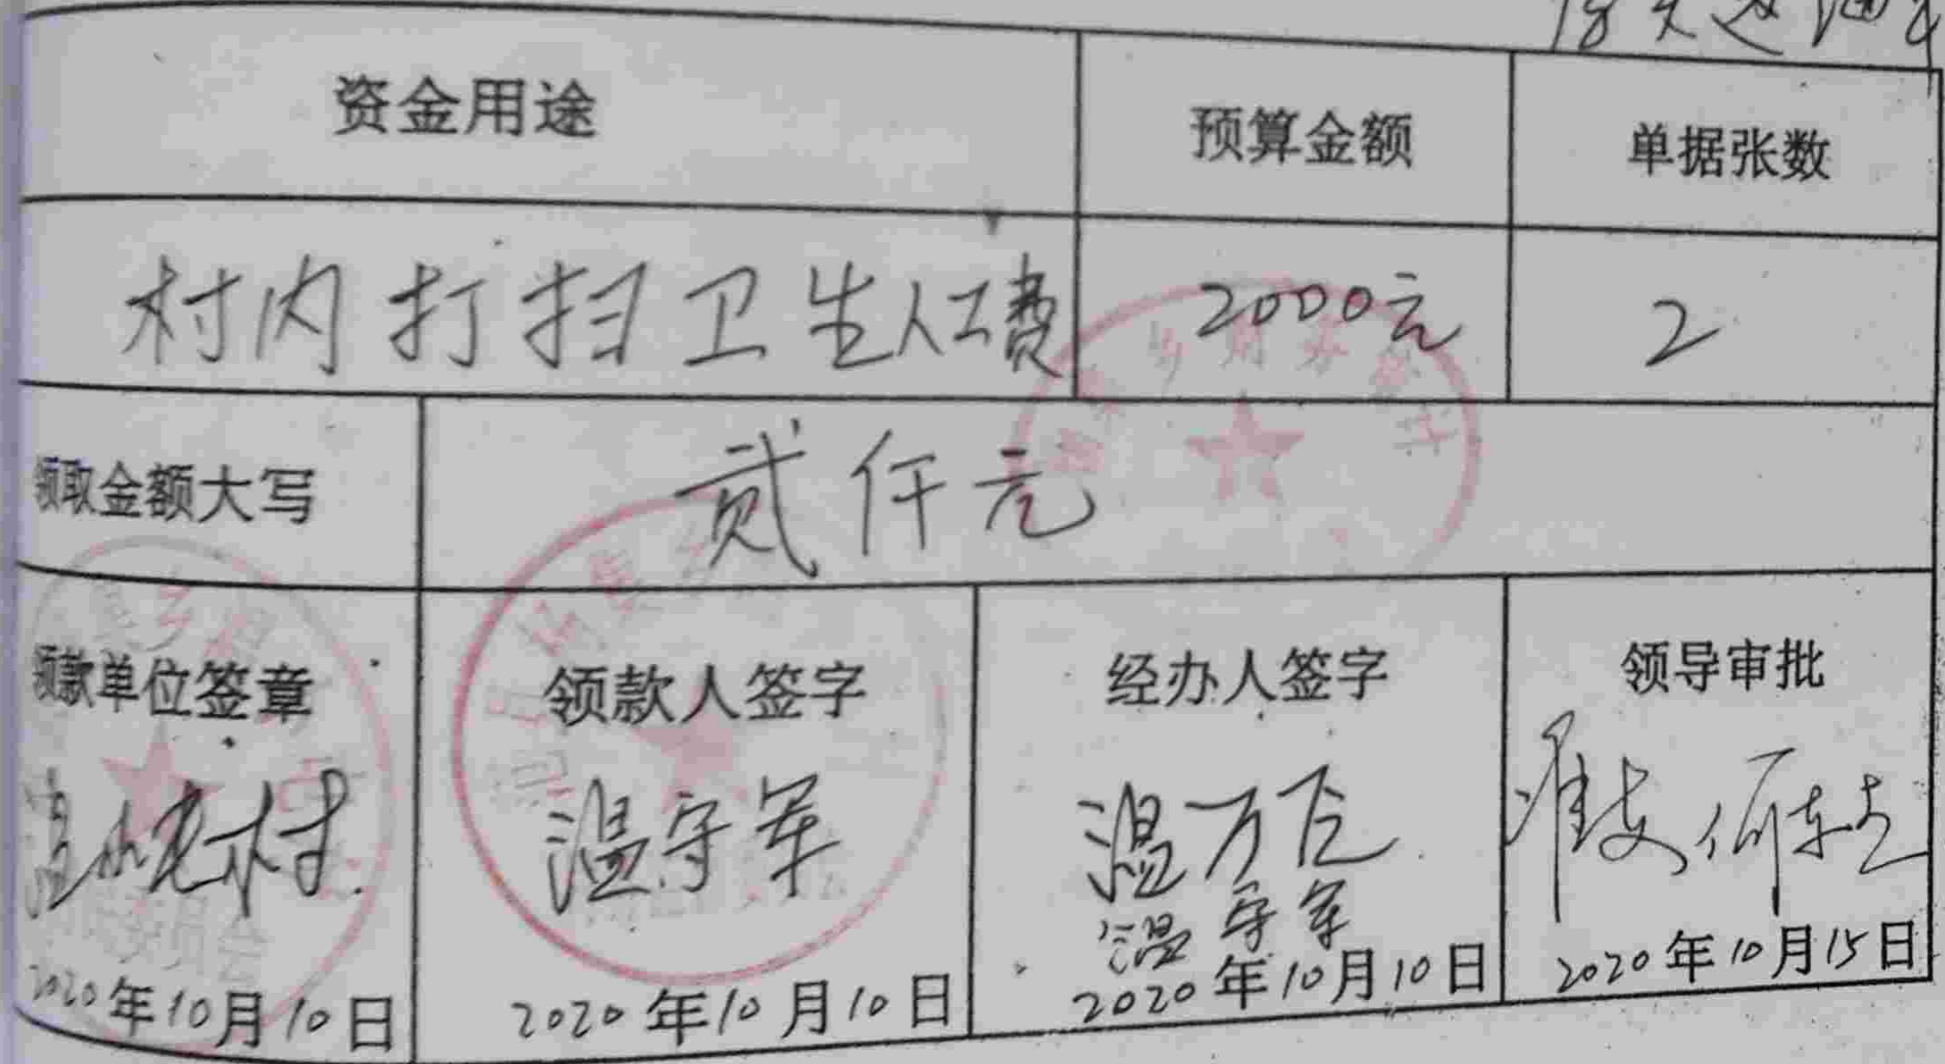 资金用途 预算金额 单据张数
村内打扫卫生人工费 2000元 2
领取金额大写 贰仟元
领款单位签章 领款人签字 经办人签字 领导审批
村 温守军 温万飞
温守军
2020年10月10日 2020年10月10日 2020年10月10日 2020年10月15日